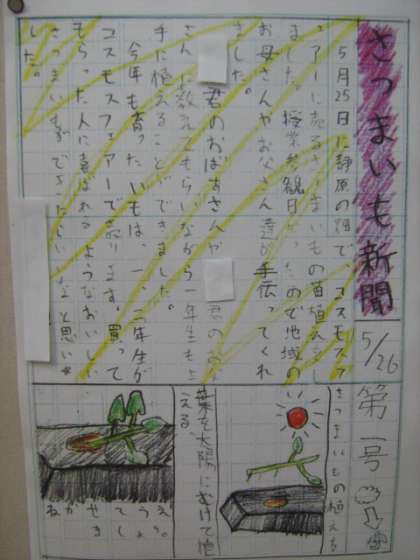 さつまいも新聞
5/26
第一号
5月25日に静原の畑で、コスモスフ
ェアーに売るさつまいもの苗植えをし
ました。授業参観日だったので地域の
お母さんやお父さん達が手伝ってくれ
ました。
君のおばあさんや
君の
さんに教えてもらいながら一年生も上
手に植えることができました。
今年も育ったいもは、一、二年生が
コスモスフェアーで売ります。買って
もらった人に喜ばれるようなおいしい
さつまいもができたらいいなと思いま
した。
さつまいもの植え方
葉を太陽にむけて植
える